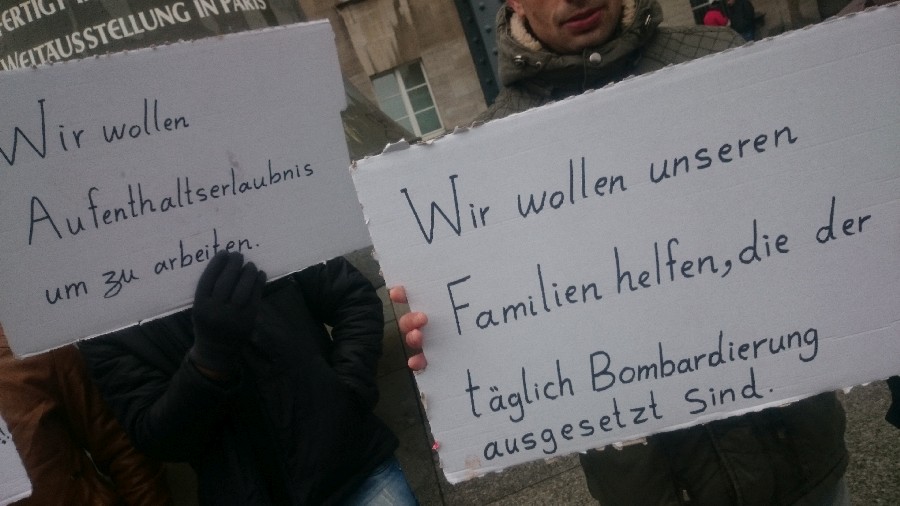 FERTIGT
WELTAUSSTELLUNG IN PARIS
Wir wollen
Aufenthaltserlaubnis
um zu arbeiten.
Wir wollen unseren
Familien helfen, die der
täglich Bombardierung
ausgesetzt Sind.